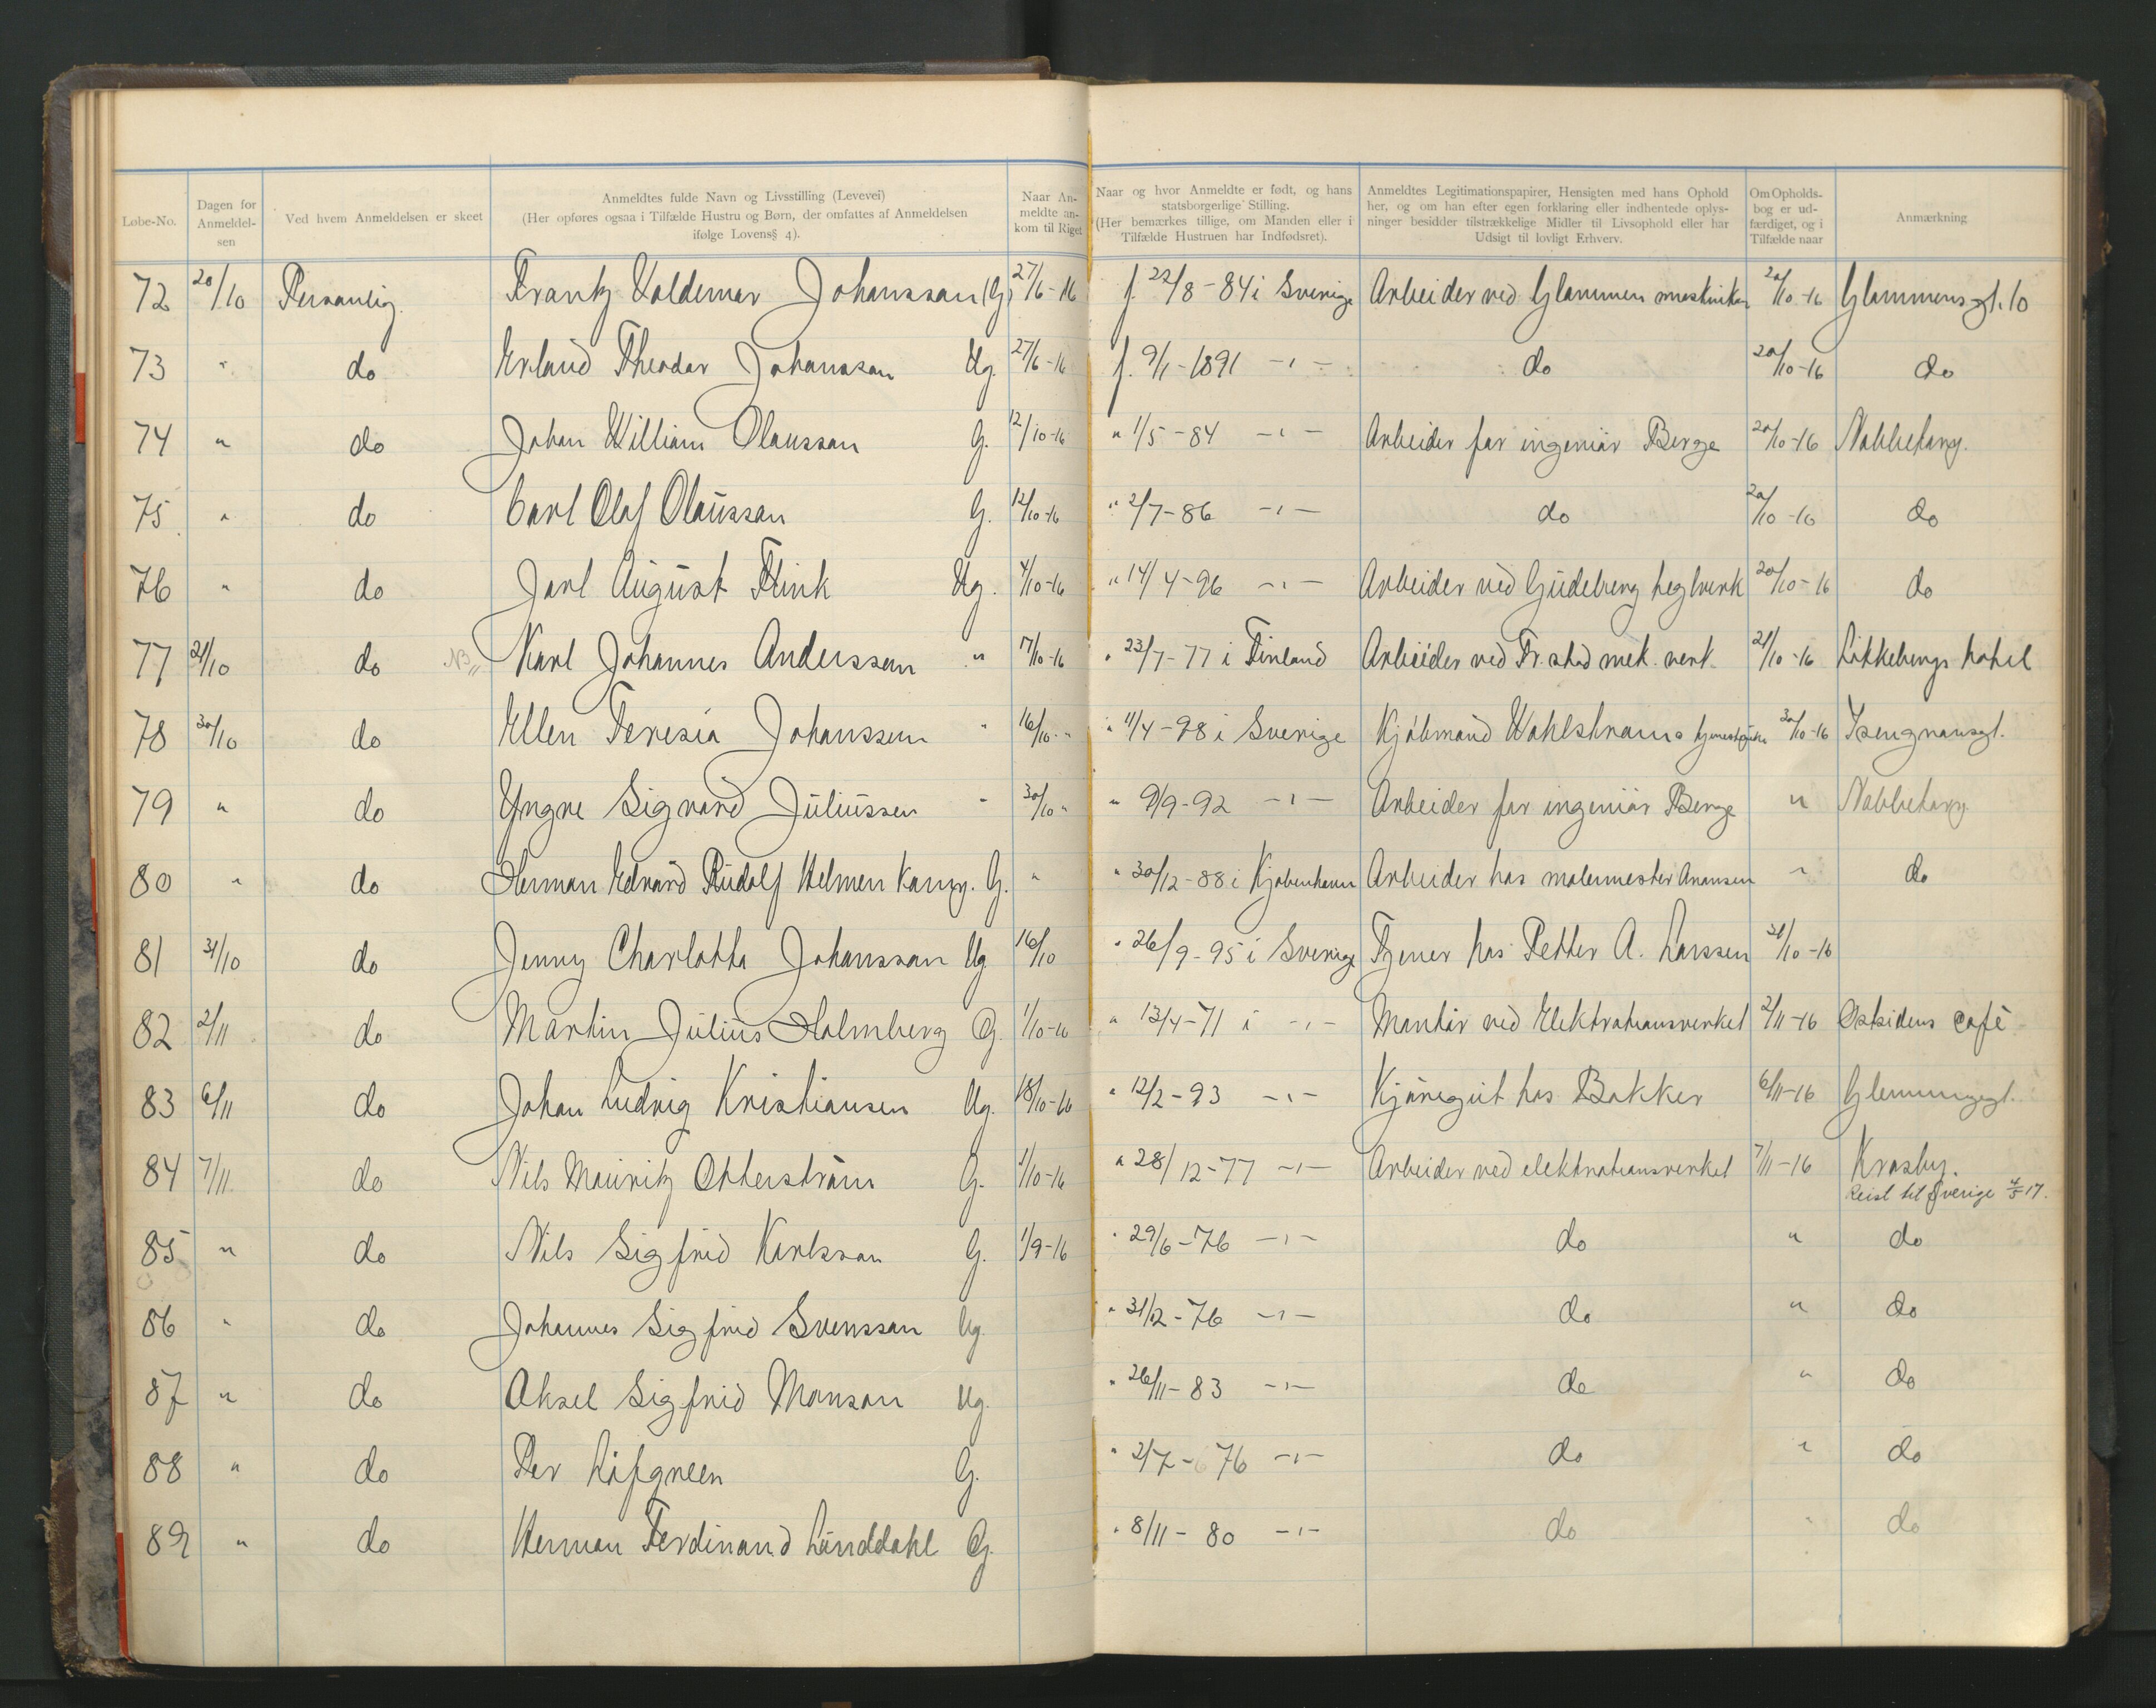 Løbe-No. Dagen for Anmeldel-sen Ved hvem Anmeldelsen er skeet Anmeldtes fulde Navn og Livsstilling (Levevei) (Her opføres ogsaa i Tilfælde Hustru og Børn, der omfattes af Anmeldelsen ifølge Lovens § 4). Naar An-meldte an-kom til Riget Naar og hvor Anmeldte er født, og hans statsborgerlige Stilling. (Her bemærkes tillige, om Manden eller i Tilfælde Hustruen har Indfødsret). Anmeldtes Legitimationspapirer, Hensigten med hans Ophold her, og om han efter egen forklaring eller indhentede oplys-ninger besidder tilstrækkelige Midler til Livsophold eller har Udsigt til lovligt Erhverv. Om Opholds-bog er ud-færdiget, og i Tilfælde naar Anmærkning
72 20/10 Personlig. Frantz Valdemar Johansson (G) 27/6-16 f. 22/8-84 i Sverige Arbeider ved Glommen 20/10-16 Glommensgt. 10
73 " do Erland Theodor Johansson Ug. 27/6-16 f. 9/1-1891 -"- do 20/10-16 do
74 " do Johan William Olausson G. 12/10-16 " 1/5-84 -"- Arbeider for ingeniör Berge 20/10-16 Nabbetorp.
75 " do Carl Olof Olausson G. 12/10-16 " 2/7-86 -"- do 20/10-16 do
76 " do Jarl August Flink Ug. 4/10-16 " 14/4-96 -"- Arbeider ved Gudeberg teglverk 20/10-16 do
77 21/10 do NB " Karl Johannes Andersson " 17/10-16 " 23/7-77 i Finland Arbeider ved Fr.stad mek. verk. 21/10-16 Lökkebergs hotel
78 30/10 do Ellen Teresia Johanssen " 16/10-" " 11/4-98 i Sverige Kjöbmand Wahlstroms 30/10-16
79 " do Yngve Sigvard Juliussen " 30/10 " " 9/9-92 -"- Arbeider for ingeniör Berge " Nabbetorp
80 " do Herman Edvard Rudolf Helmen Kamp. G. " " 30/12-88 i Kjøbenhavn Arbeider hos malermester Aronsen " do
81 31/10 do Jenny Charlotta Johansson Ug 16/10 " 26/9-95 i Sverige Tjener hos Petter A. Larssen 31/10-16
82 2/11 do Martin Julius Holmberg G. 1/10-16 " 13/4-71 i -"- Montör ved Elektrationsverket 2/11-16 Østsidens café
83 6/11 do Johan Ludvig Kristiansen Ug. 18/10-16 " 12/2-93 -"- Kjöregut hos Bakker 6/11-16 Glemmengt.
84 7/11 do Nils Mauritz Otterström G. 1/10-16 " 28/12-77 -"- Arbeider ved elektrationsverket 7/11-16 Kraaby.
Reist til Sverige 4/5 17.
85 " do Nils Sigfrid Karlsson G. 1/9-16 " 29/6-76 -"- do " do
86 " do Johannes Sigfrid Svensson Ug. " 31/12-76 -"- do " do
87 " do Aksel Sigfrid Monson Ug. " 26/11-83 -"- do " do
88 " do Per Löfgreen G. " 2/7-76 -"- do " do
89 " do Herman Ferdinand Lunddahl G. " 8/11-80 -"- do " do